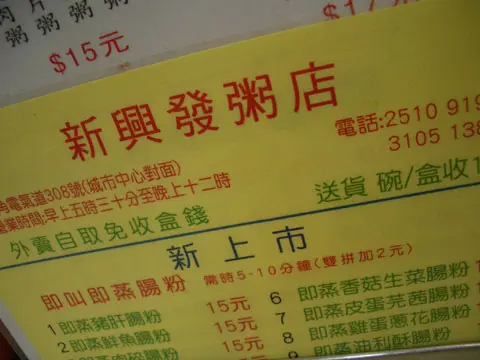 肉片粥
粥
粥
$15元
粥
新興發粥店
電話:2510 919
3105 138
角電氣道308號(城市中心對面)
業時間:早上五時三十分至晚上十二時
送貨 碗/盒收1
外賣自取免收盒錢
新上市
即叫即蒸腸粉 需時5-10分鐘(雙拼加2元)
1 即蒸豬肝腸粉 15元 6 即蒸香菇生菜腸粉
2 即蒸鮮魚腸粉 15元 7 即蒸皮蛋芫茜腸粉
15元 8 即蒸雞蛋蔥花腸粉
15元 9 即蒸油利酥腸粉